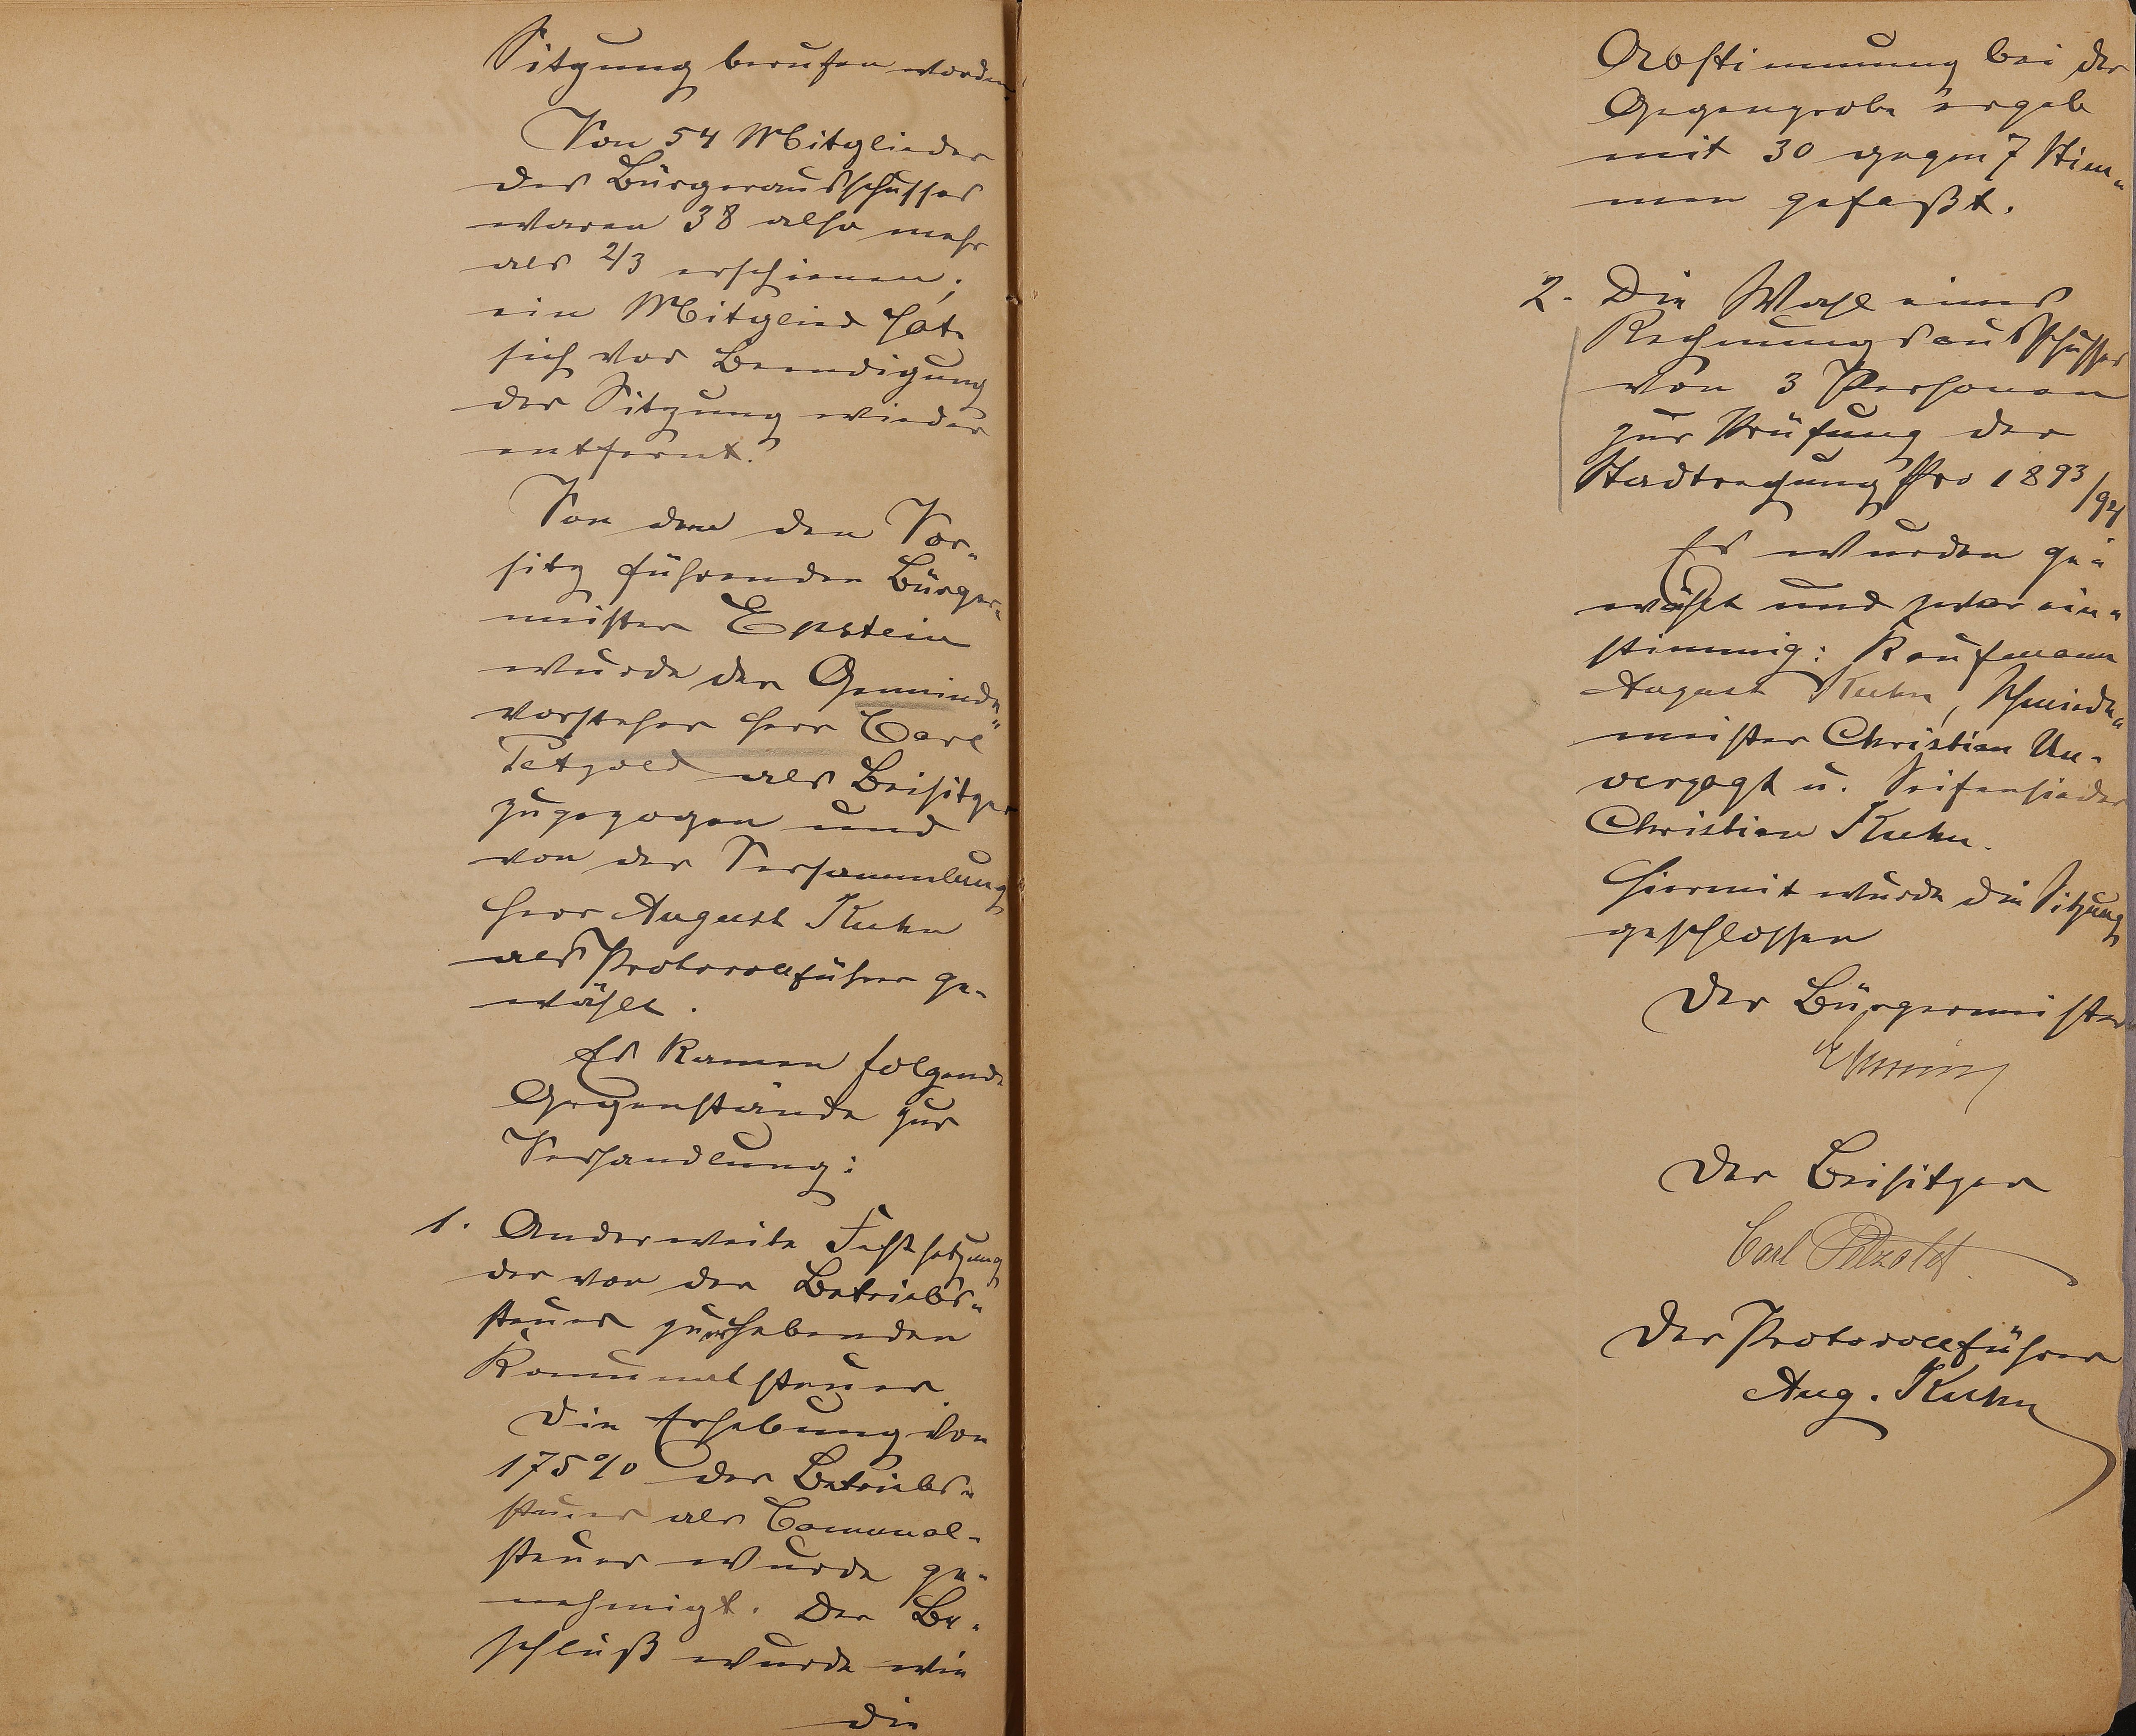 Sitzung berufen worden
Von 54 Mitglieder
des Bürgerausschusses
waren 38 also mehr
als 2/3 erschienen;
ein Mitglied hat
sich vor Beendigung
der Sitzung wieder
entfernt.
Von dem den Vor-
sitz führenden Bürger-
meister Epstein
wurde der Gemeinde-
vorsteher Herr Carl
Petzold als Beisitzer
zugezogen und
von der Versammlung
Herr August Kuhn
als Protocollführer ge-
wählt.
Es kamen folgende
Gegenstände zur
Verhandlung:
1. Anderweite Festsetzung
der von der Betriebs-
steuer zu erhebenden
Komunalsteuer.
Die Erhebung von
175% der Betriebs-
steuer als Comunal-
steuer wurde ge-
nehmigt. Der Be-
schluß wurde wie
die
Abstimmung bei der
Gegenprobe ergab
mit 30 gegen 7 Stim-
men gefaßt.
2. Die Wahl eines
Rechnungsausschusses
von 3 Personen
zur Prüfung der
Stadtrechnung pro 1893/94
Es wurden ge-
wählt und zwar ein-
stimmig: Kaufmann
August Kuhn, Schmiede-
meister Christian Un-
verzagt u. Seifensieder
Christian Kuhn.
Hiermit wurde die Sitzung
geschlossen
Der Bürgermeister
Der Beisitzer
Carl Petzold.
Der Protocollführer
Aug. Kuhn